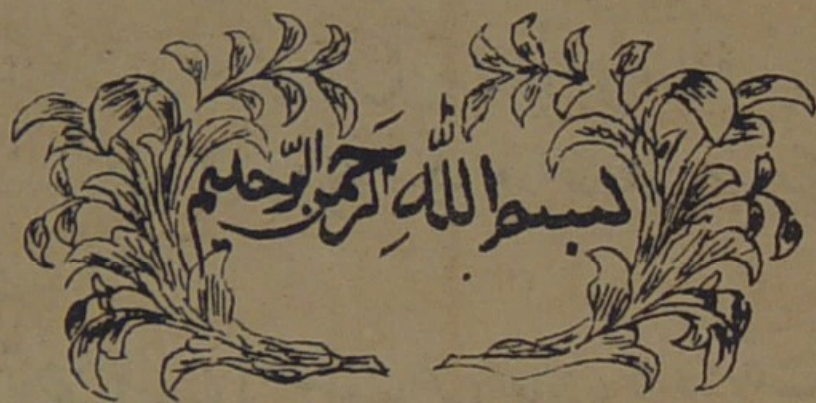 بسم اللهِ الرَّحمن الرّحيم